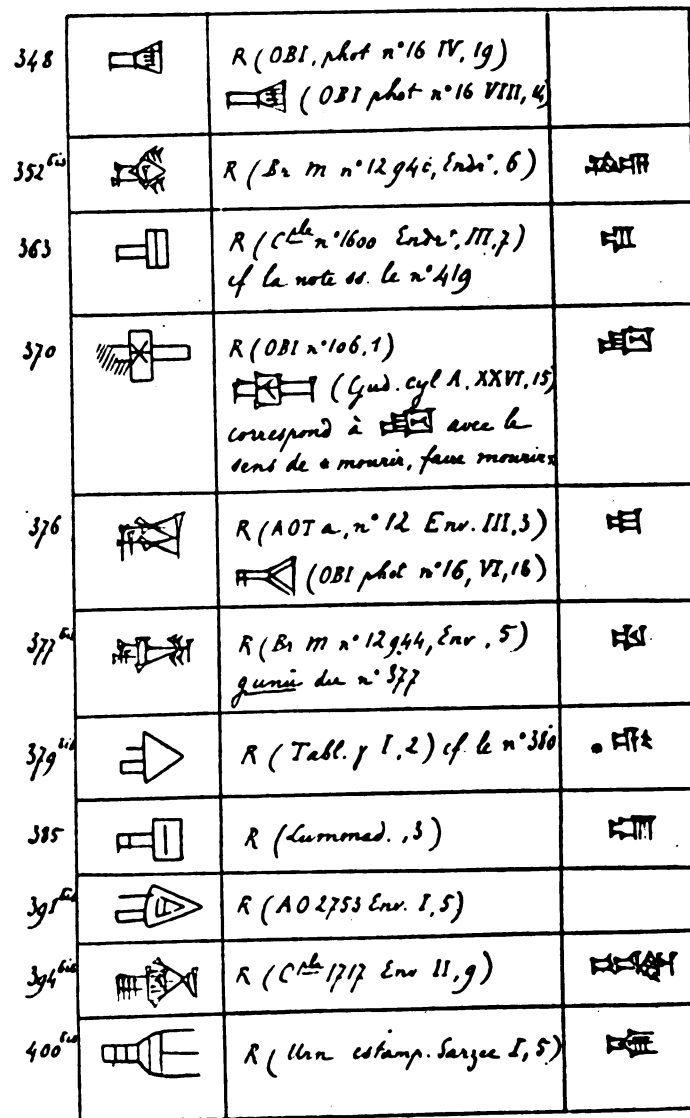 348 R (OBI, phot n° 16 IV, 19)
(OBI phot n° 16 VIII, 4)
352 bis R (Br M n° 12942, Endr°, 6)
363 R (Cple n° 1600 Endr°, III, 7)
cf la note ss. le n° 419
370 R (OBI n° 106, 1)
(Gud. cyl A, XXVI, 15)
correspond à avec le
sens de « mourir, faire mourir »
376 R (AOT a, n° 12 Env. III, 3)
(OBI phot n° 16, VI, 16)
377 bis R (Br M n° 12944, Env, 5)
gunu du n° 377
379 bis R (Tabl. γ I, 2) cf. le n° 380
385 R (Lummad., 3)
391 bis R (AO 2753 Env. I, 5)
394 bis R (Cple 1717 Env II, 9)
400 bis R (Urn estamp. Sarzec I, 5)